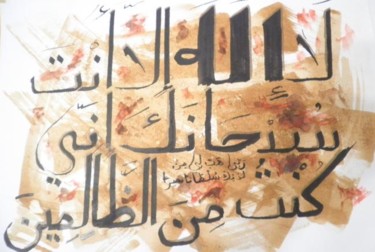 لَا إِلَهَ إِلَّا أَنْتَ
سُبْحَانَكَ إِنِّي
كُنْتُ مِنَ الظَّالِمِينَ